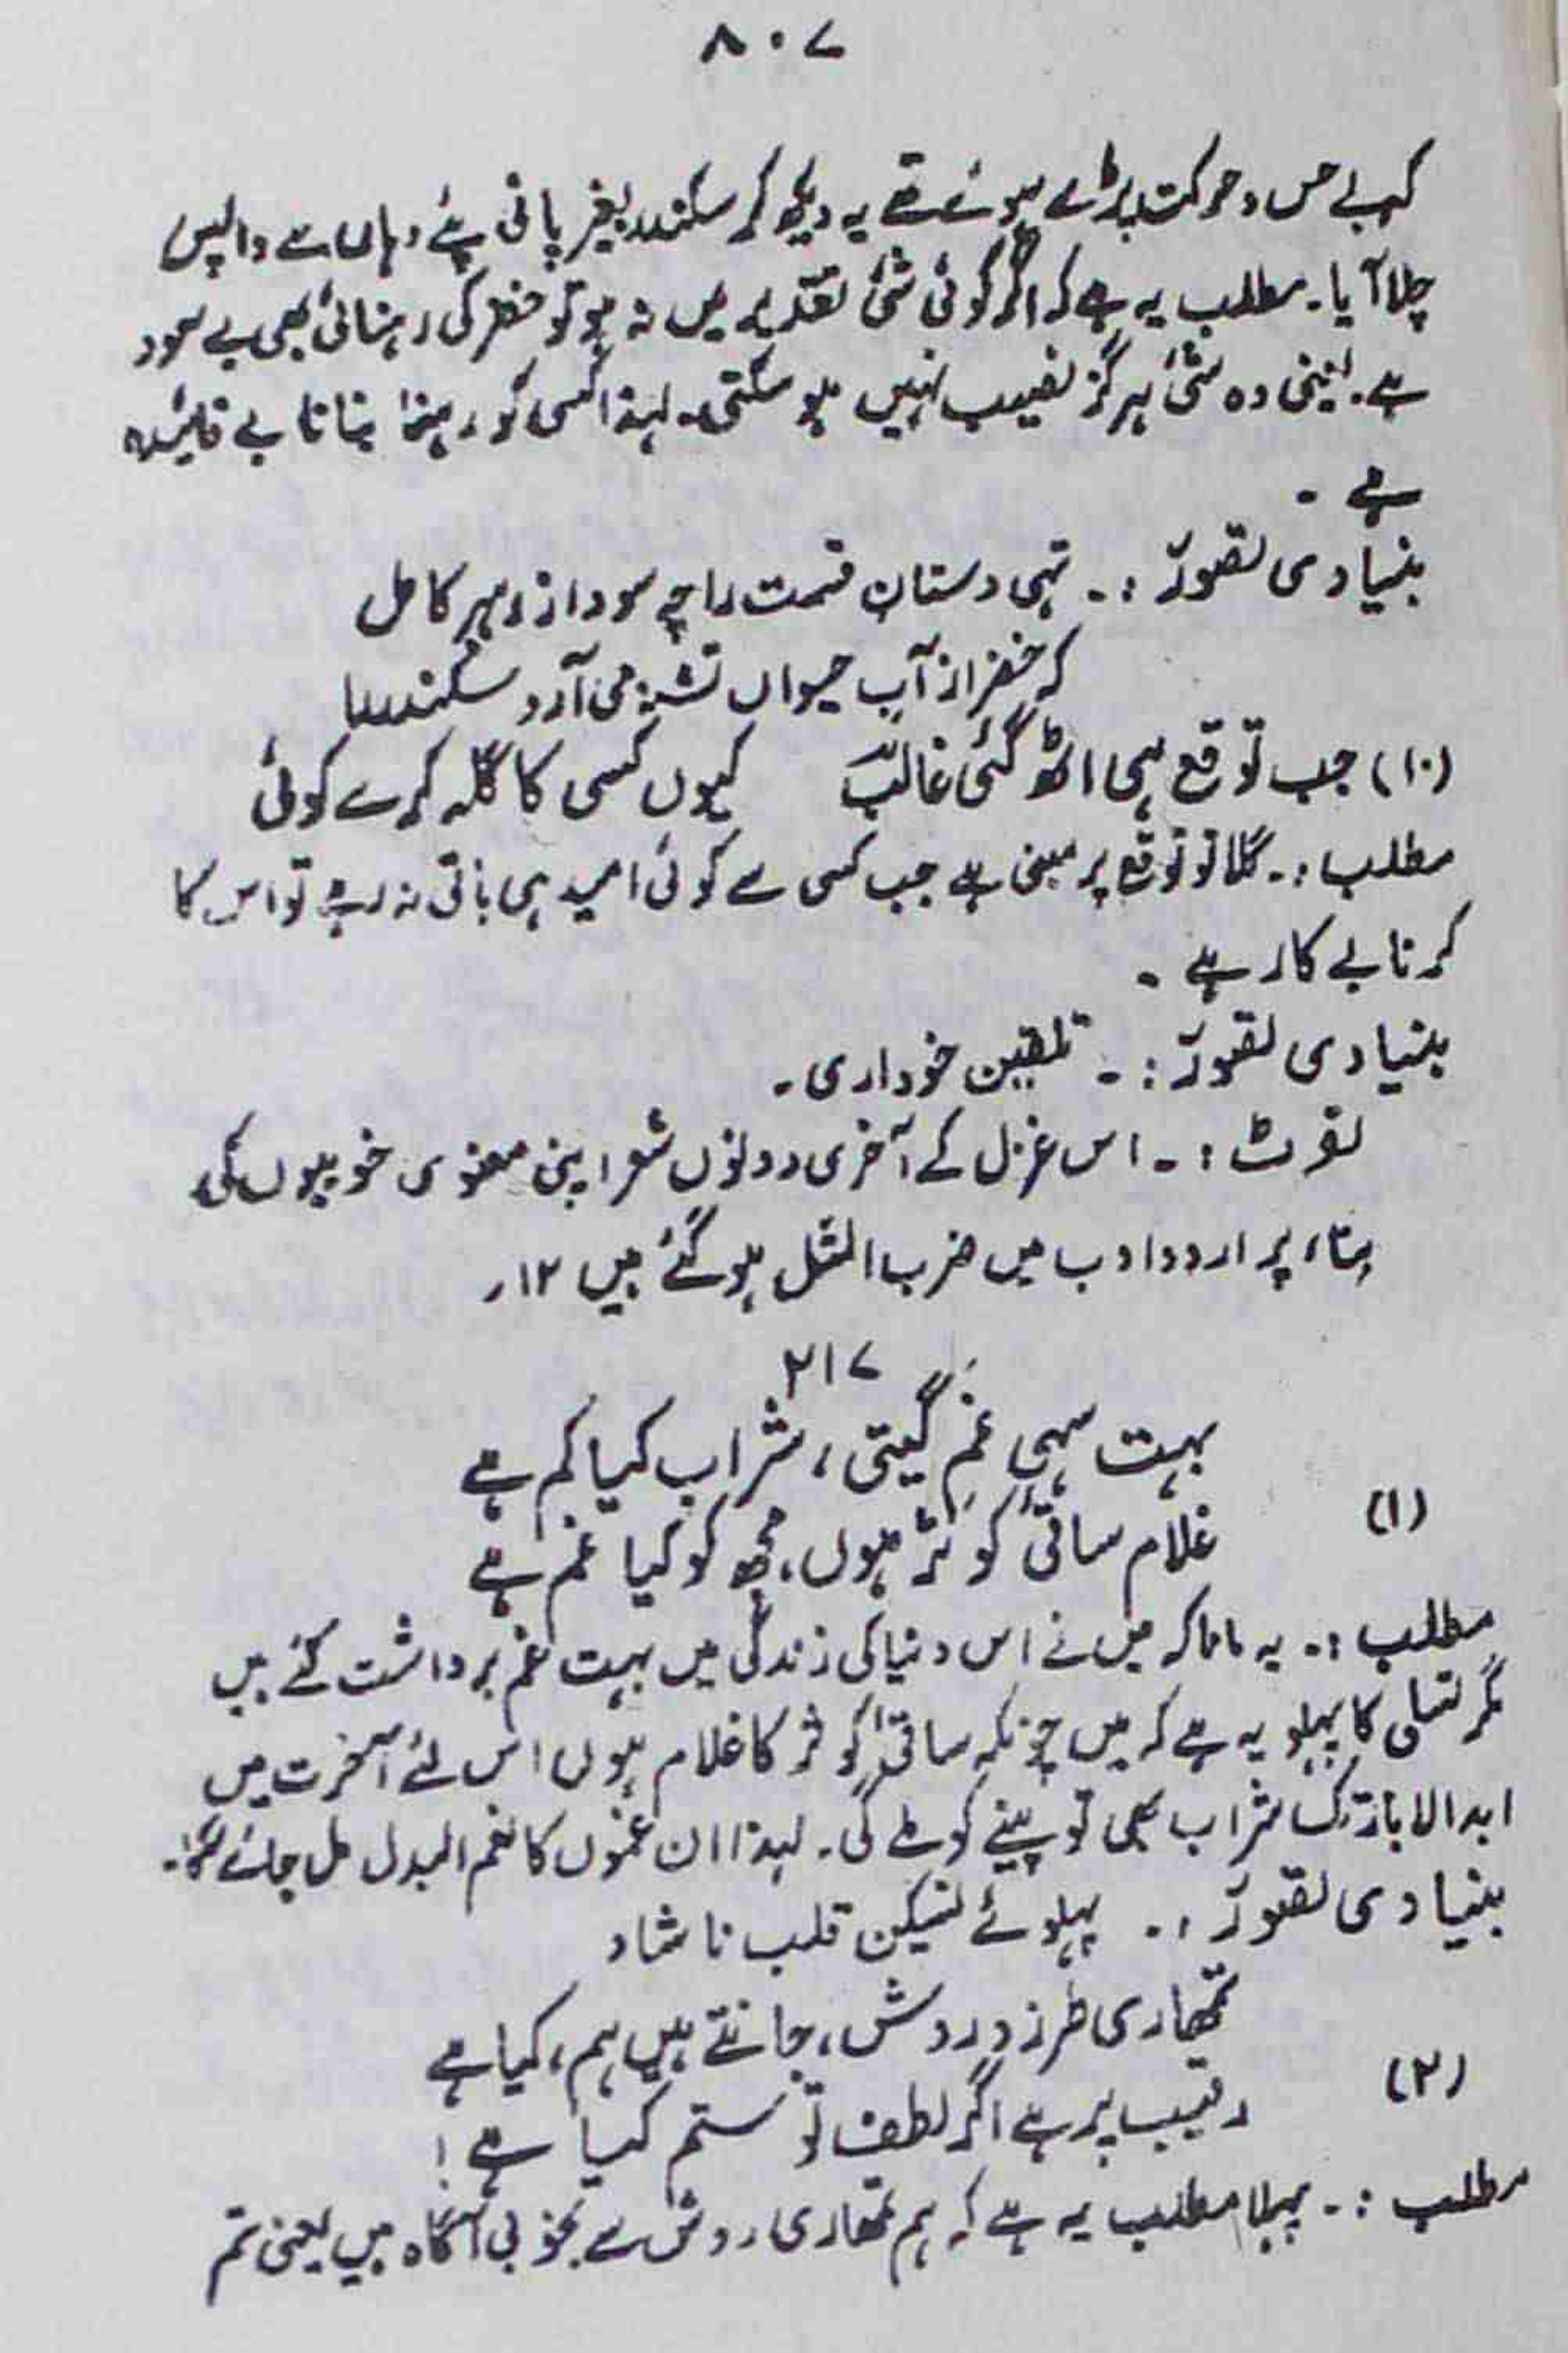 ۸۰۷
کہ بے حس و حرکت پڑے ہوئے تھے یہ دیکھ کر سکندر بغیر پانی پئے وہاں سے واپس
چلا آیا۔ مطلب یہ ہے کہ اگر کوئی شئ تقدیر میں نہ ہو تو خضر کی رہنمائی بھی بے سود
ہے۔ یعنی وہ شئ ہرگز نصیب نہیں ہو سکتی۔ لہذا کسی کو رہنما بنانا بے فائدہ
ہے ۔
بنیادی تصوّر :۔ تہی دستانِ قسمت را چہ سود از رہبر کامل
کہ خضر از آبِ حیواں تشنہ می آرد سکندر را
(۱۰) جب توقع ہی اٹھ گئی غالبؔ کیوں کسی کا گلہ کرے کوئی
مطلب :۔ گلا تو توقع پر مبنی ہے جب کسی سے کوئی امید ہی باقی نہ رہے تو اس کا
کرنا بے کار ہے ۔
بنیادی تصوّر :۔ تلقین خودداری ۔
نوٹ :۔ اس غزل کے آخری دونوں شعر اپنی معنوی خوبیوں کی
بناء پر اردو ادب میں ضرب المثل ہو گئے ہیں ۱۲ر
۲۱۷
(۱) بہت سہی غمِ گیتی ، شراب کیا کم ہے
غلام ساقیٔ کوثر ہوں، مجھ کو کیا غم ہے
مطلب :۔ یہ مانا کہ میں نے اس دنیا کی زندگی میں بہت غم برداشت کئے ہیں
مگر تسلی کا پہلو یہ ہے کہ میں چونکہ ساقیٔ کوثر کا غلام ہوں اس لئے آخرت میں
ابد الاباد تک شراب بھی تو پینے کو ملے گی۔ لہذا ان غموں کا نعم البدل مل جائے گا۔
بنیادی تصوّر :۔ پہلوئے تسکین قلب ناشاد
(۲) تمھاری طرز و روش، جانتے ہیں ہم، کیا ہے
رقیب پر ہے اگر لطف تو ستم کیا ہے !
مطلب :۔ پہلا مطلب یہ ہے کہ ہم تمھاری روش سے بخوبی آگاہ ہیں یعنی تم